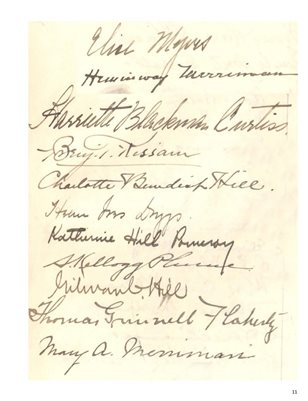 Elise Myers
Hemingway Merriman
Harriette Blackman Curtiss.
Benj. Kissam
Charlotte Benedict Hill.
Katherine Hill Pomeroy
S. Kellogg Plume
Hill
Thomas Grinnell Flaherty
Mary A. Merriman
11